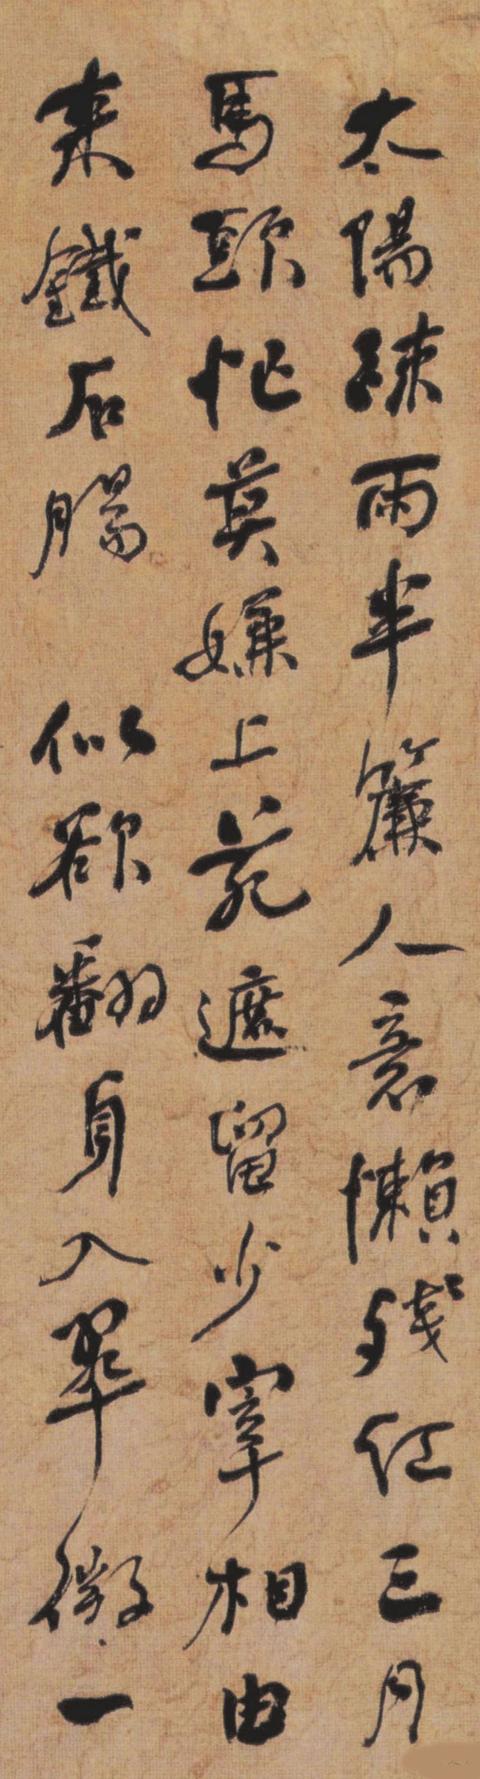 太陽疎雨半簾人意懶殘紅三月
馬頭忙莫嫌上苑遮留少宰相由
来鐵石腸 似欲翻身入翠微一